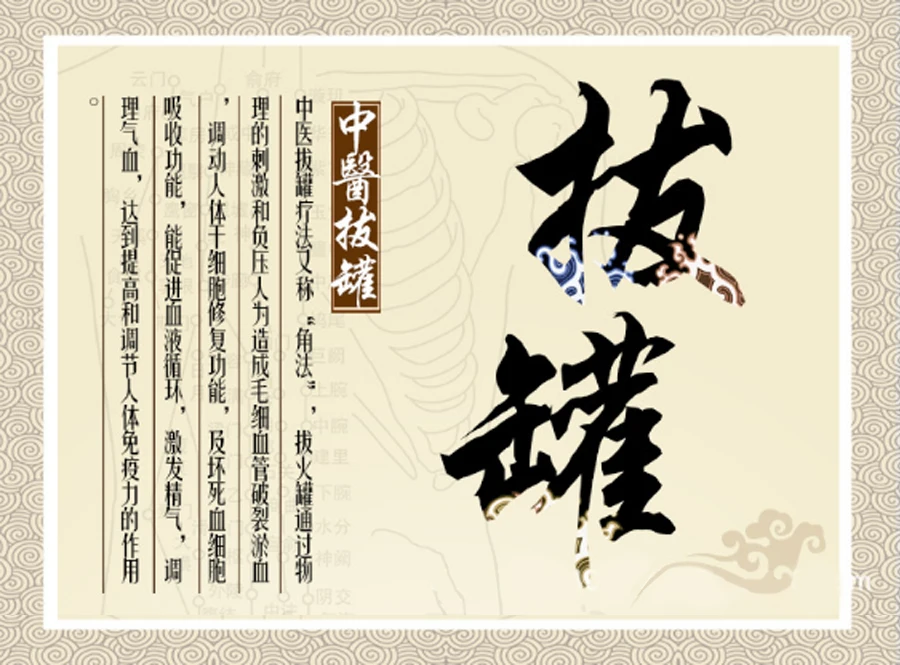 拔罐
中醫拔罐
中医拔罐疗法又称“角法”，拔火罐通过物
理的刺激和负压人为造成毛细血管破裂淤血
，调动人体干细胞修复功能，及坏死血细胞
吸收功能，能促进血液循环，激发精气，调
理气血，达到提高和调节人体免疫力的作用
。
云门
俞府
巨阙
上脘
中脘
建里
下脘
水分
神阙
阴交